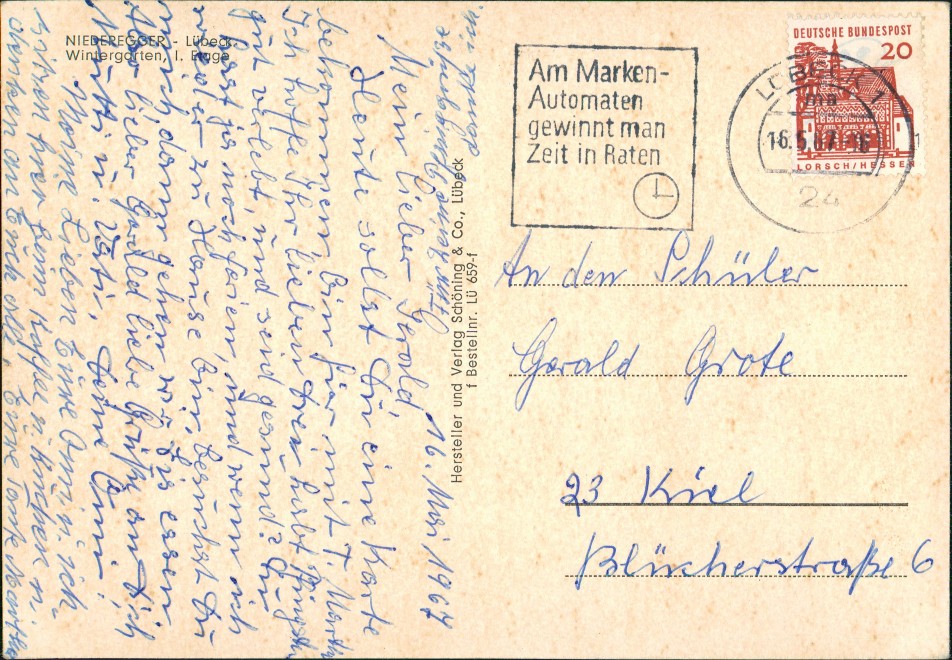 NIEDEREGGER - Lübeck
Wintergarten, I. Etage
Hersteller und Verlag Schöning & Co., Lübeck
f Bestellnr. LÜ 659-f
Am Marken-
Automaten
gewinnt man
Zeit in Raten
LÜBECK 1
16.5.67
24
DEUTSCHE BUNDESPOST
20
LORSCH/HESSEN
An den Schüler
Gerald Grote
23 Kiel
Blücherstraße 6
16. Mai 1967
Mein lieber Gerald,
Heute sollst Du eine Karte
bekommen, bin hier mit T. Martha
Ich hoffe Ihr Lieben drei habt Pfingsten
gut verlebt, und seid gesund? Du
hast ja noch ferien, und wenn ich
wieder zu Hause bin, besuchst Du
mich, dann gehen wir Eis essen
Also lieber Gerald liebe Grüße an Dich
Mutti u. Vati, Deine Omi
Meine Lieben Eure Omi u. ich
sitzen hier beim Kaffee u. Kuchen u.
an Euch alle Eure Tante Martha